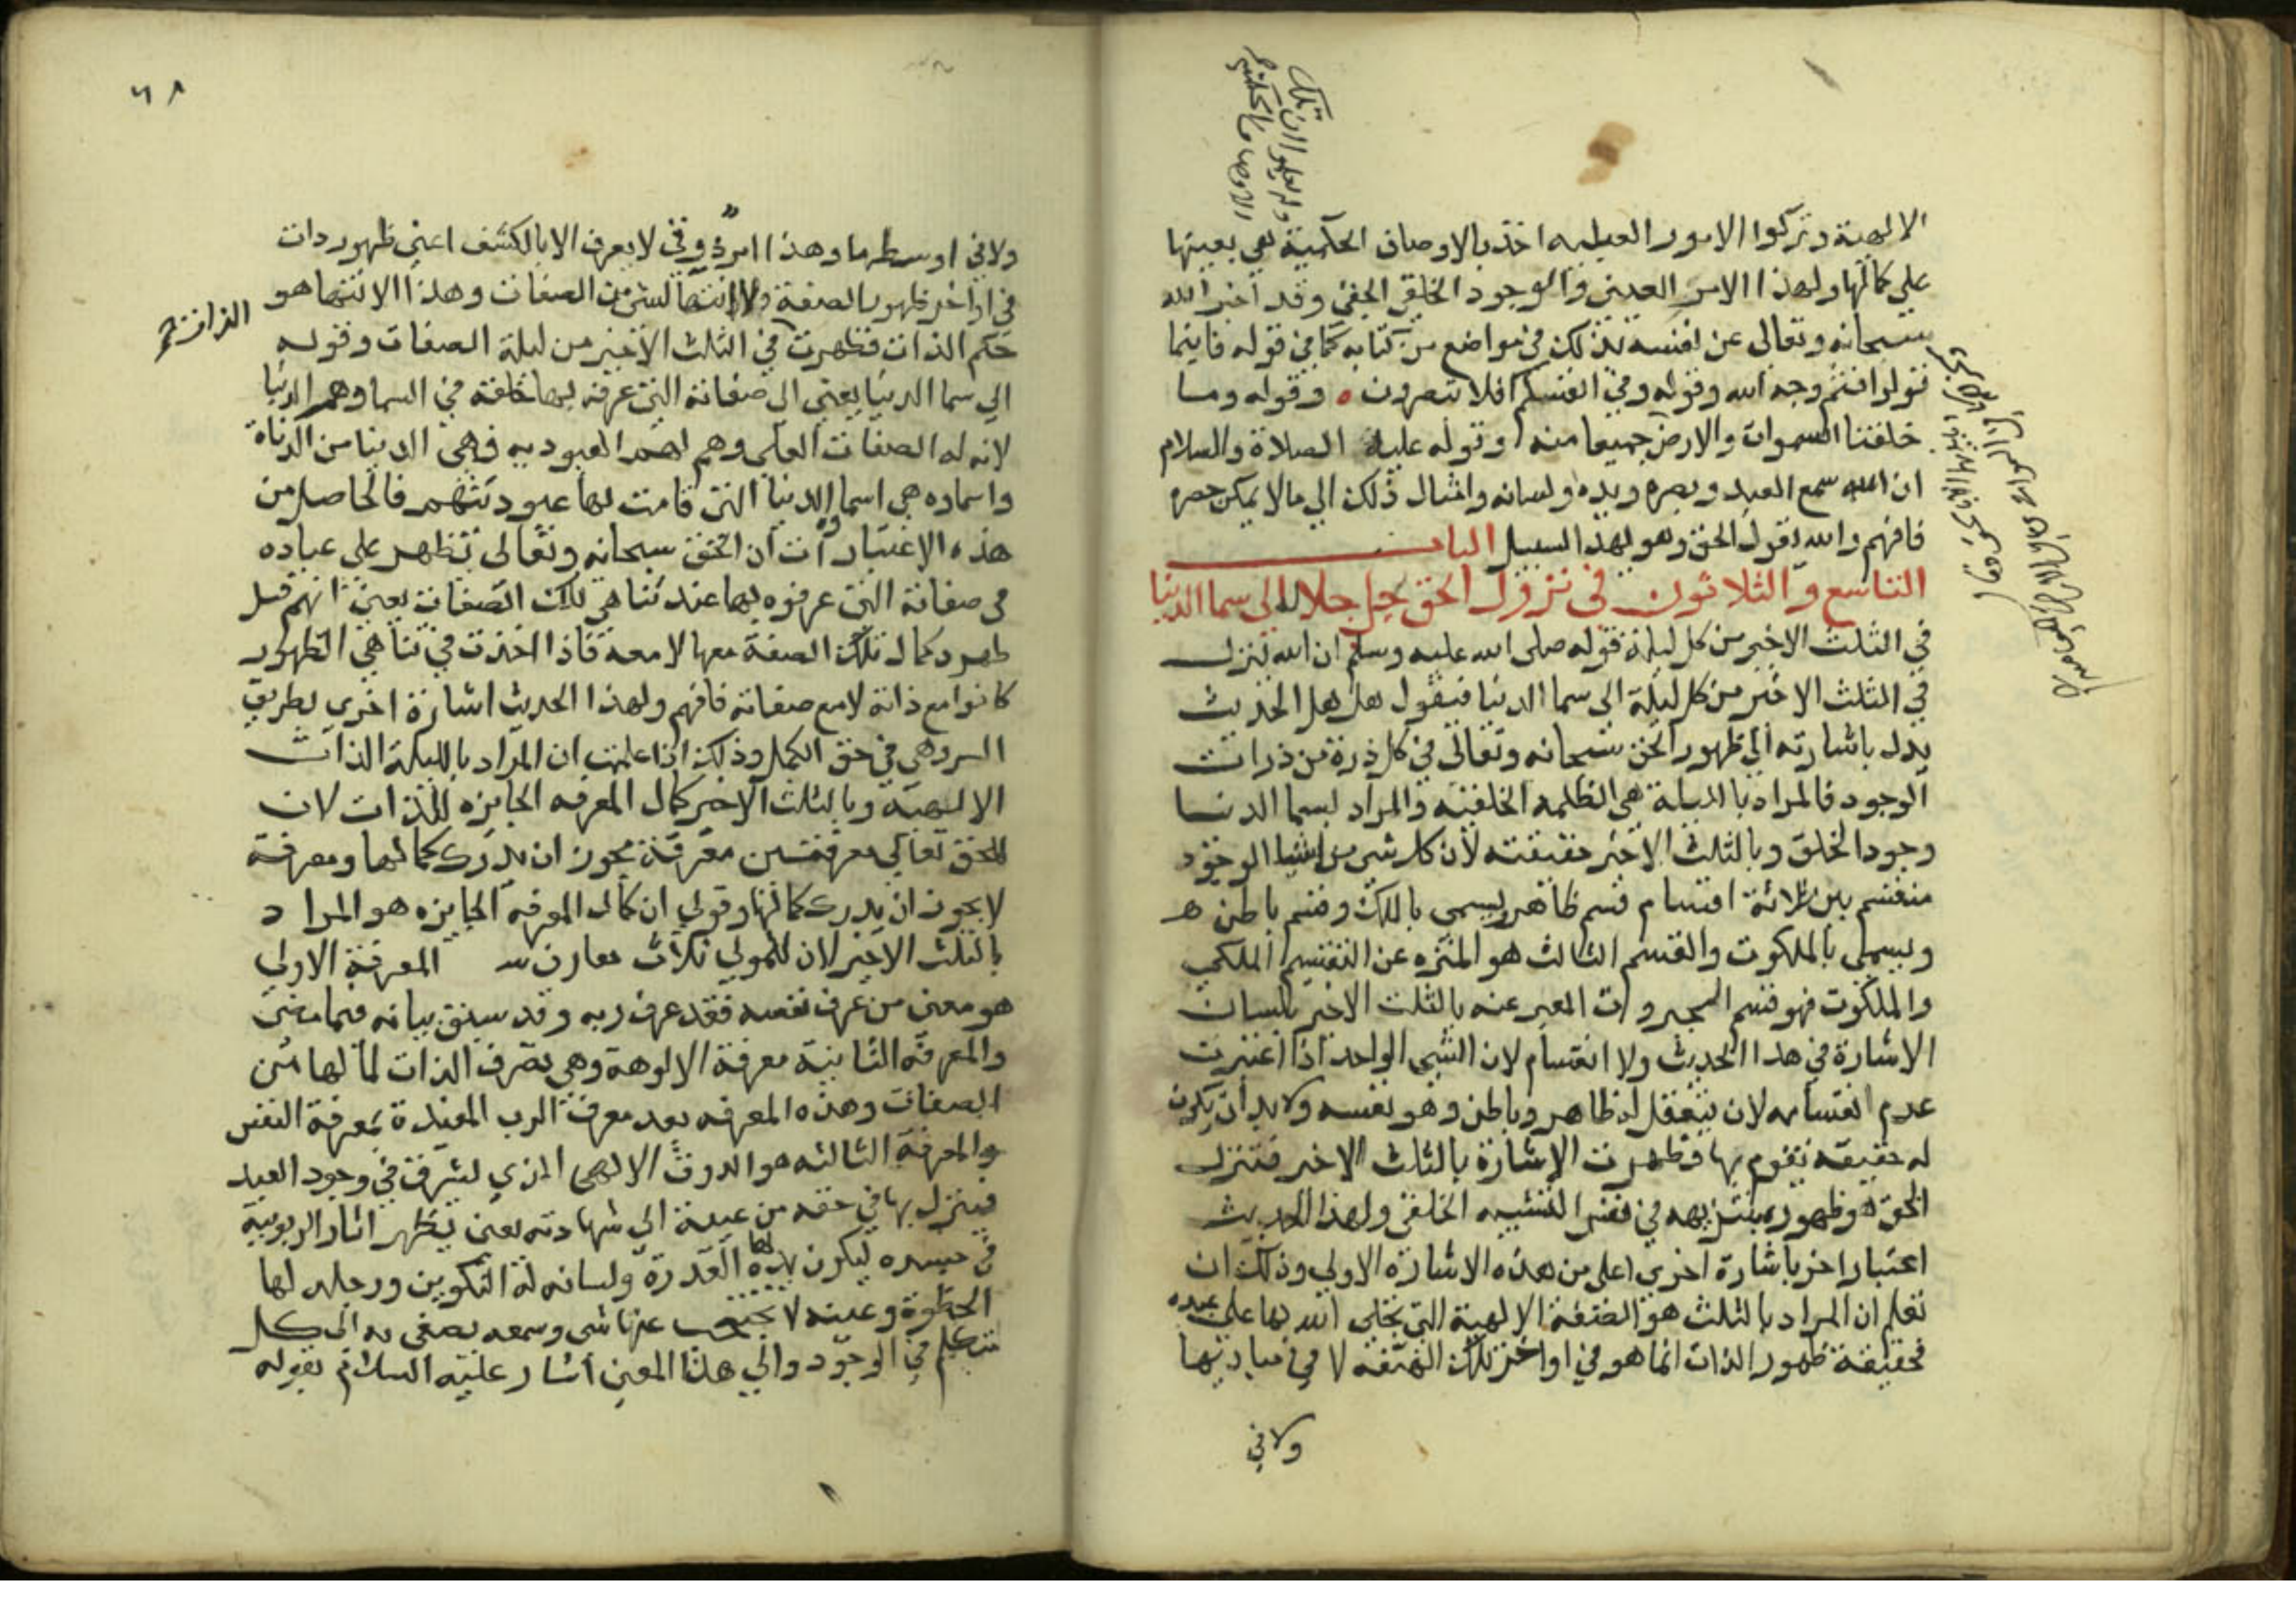 الالهية وتركوا الامور العطيه اخذ بالاوصاف الحكمية هي بعينها
على كمالها ولهذا الامر العيني والوجود الخلقي الحقي وقد اخبر الله
سبحانه وتعالى عن نفسه بذلك في مواضع من كتابه كما في قوله فاينما
تولوا فثم وجه الله وقوله وفي انفسكم افلا تبصرون ه وقوله وما
خلقنا السموات والارض جميعا منه وقوله عليه الصلاة والسلام
ان الله سمع العبد وبصره ويده ولسانه وامثال ذلك الى مالا يمكن حصره
فافهم والله يقول الحق وهو يهدى السبيل الباب
التاسع والثلاثون في نزول الحق جل جلاله الى سما الدنيا
في الثلث الاخير من كل ليلة قوله صلى الله عليه وسلم ان الله ينزل
في الثلث الاخير من كل ليلة الى سما الدنيا فيقول هل هل الحديث
يدل باشارته الى ظهور الحق سبحانه وتعالى في كل ذرة من ذرات
الوجود فالمراد بالليلة هي الظلمه الخلقية والمراد بسما الدنيا
وجود الخلق وبالثلث الاخير حقيقته لان كل شي من اشيا الوجود
منقسم بين ثلاثة اقسام قسم ظاهر ويسمى بالملك وقسم باطن هـ
ويسمى بالملكوت والقسم الثالث هو المنزه عن التقسيم الملكي
والملكوت فهو قسم الجبروات المعبر عنه بالثلث الاخير بلسان
الاشارة في هذا الحديث ولا انقسام لان الشي الواحد اذا اعتبرت
عدم انقسامه لان يتعقل له ظاهر وباطن وهو نفسه ولا بد ان يكون
له حقيقه تقوم بها فظهرت الاشارة بالثلث الاخير فتنزل
الحق هو ظهوره بتنزيهه في نفس التشبيه الخلقي ولهذا الحديث
اعتبار اخر باشارة اخرى اعلى من هذه الاشاره الاولى وذلك ان
تعلم ان المراد بالثلث هو الصفة الالهية التي تجلى الله بها على عبده
فحقيقة ظهور الذات انما هو في اواخر تلك الصفه لا في مباديها
ولا في
٦٨
ولا في اوسطها وهذا امر ذوقي لا يعرف الا بالكشف اعني ظهور ذات
في اواخر ظهور الصفة ولا انتها لشي من الصفات وهذا الانتها هو
حكم الذات فظهرت في الثلث الاخير من ليلة الصفات وقوله
الى سما الدنيا يعني الى صفاته التي عرفه بها خلقه في السما وهم الدنيا
لانه له الصفات العلى وهم لهم العبوديه فهى الدينا من الدناة
واسماوه هي اسما الدنيا التي قامت لها عبوديتهم فالحاصل من
هذه الاعتبارات ان الحق سبحانه وتعالى يظهر على عباده
في صفاته التي عرفوه بها عند تناهي تلك الصفات يعني انهم قبل
ظهور كمال تلك الصفة معها لا معه فاذا اخذت في تناهي الظهور
كانوا مع ذاته لا مع صفاته فافهم ولهذا الحديث اشارة اخرى بطريق
السر وهى في حق الكمل وذلك اذا علمت ان المراد بالليلة الذات
الالهية وبالثلث الاخير كمال المعرفه الجايزه للذات لان
للحق تعالى معرفتين معرفة يجوز ان يدرك كمالها ومعرفة
لا يجوز ان يدرك كمالها وقولي ان كمال المعرفه الجايزه هو المراد
بالثلث الاخير لان للمولى ثلاث معارف المعرفة الاولى
هو معنى من عرف نفسه فقد عرف ربه وقد سبق بيانه فيما مضى
والمعرفة الثانية معرفة الالوهة وهي تعرف الذات لما لها من
الصفات وهذه المعرفه بعد معرفة الرب المقيدة بمعرفة النفس
والمعرفة الثالثه هو الذوق الالهى الذي يسرى في وجود العبد
فينزل بها في حقه من غيبة الى شهادته يعني يظهر اثار الربوبية
في جسده ليكون يده لها القدرة ولسانه له التكوين ورجله لها
الخطوة وعينه لا يحتجب عنها شى وسمعه يصغى به الى كل
متكلم في الوجود والى هذا المعنى اشار عليه السلام بقوله